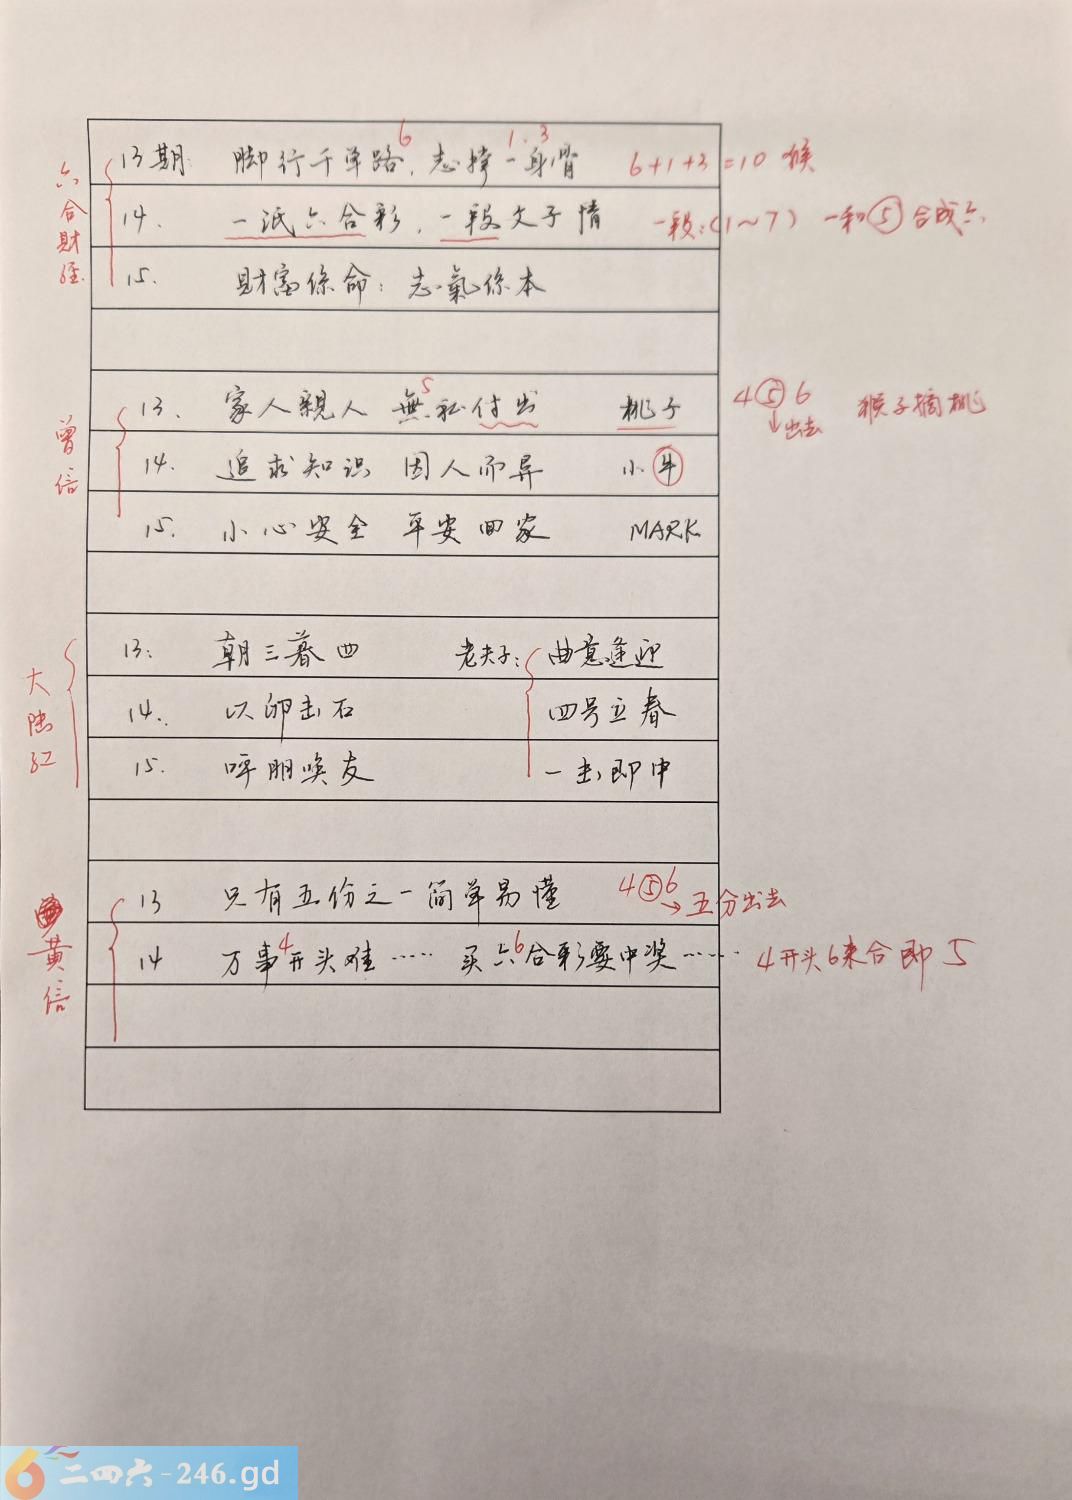 六合財经
13期: 脚行千单路6，志撑一身骨1.3 6+1+3=10 猴
14. 一派六合彩，一段文子情 一段:(1~7) 一和⑤合成六
15. 財富係命：志氣係本
曾信
13. 家人親人 無私付出5 桃子 4⑤6 →出去 猴子摘桃
14. 追求知识 因人而异 小牛
15. 小心安全 平安回家 MARK
大陆红
13: 朝三暮四 老夫子: 曲意逢迎
14. 以卵击石 四号立春
15. 呼朋唤友 一击即中
黄信
13 只有五份之一简单易懂 4⑤6 →五分出去
14 万事4开头难…… 买六6合彩要中奖…… 4开头6来合即5
二四六-246.gd